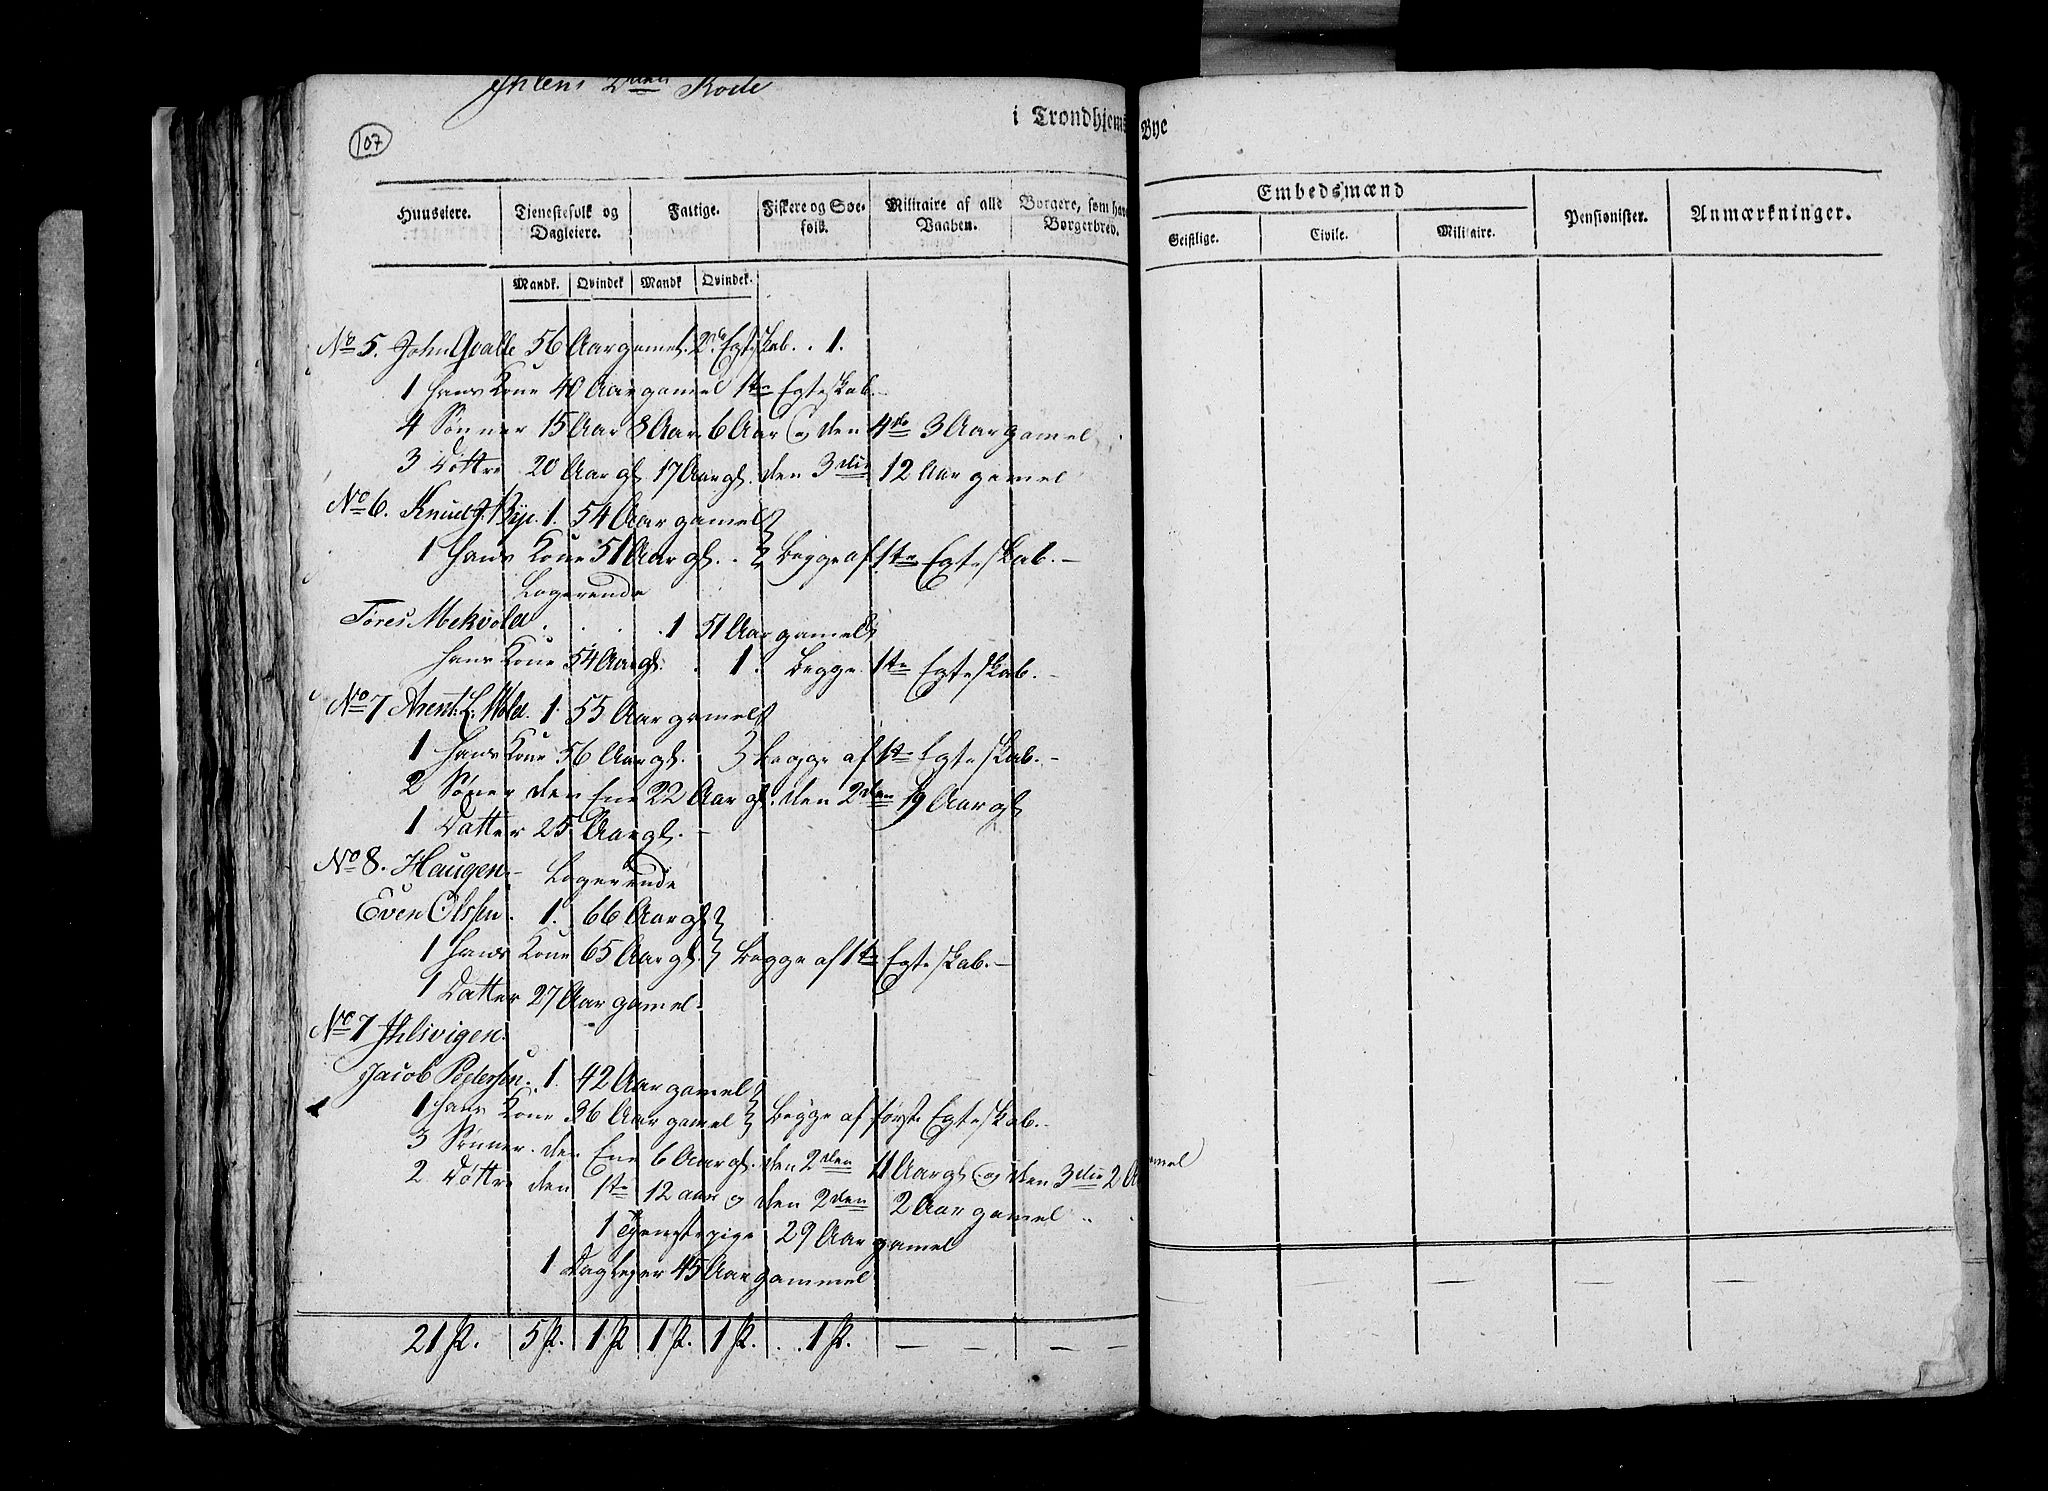 Ihlens 2den Rode
i Trondhjems Bye
107
Huuseiere.
Tjenestefolk og Dagleiere.
Fattige.
Fiskere og Søefolk.
Militaire af alle Vaaben.
Borgere, som have Borgerbrev.
Embedsmænd
Geistlige.
Civile.
Militaire.
Pensionister.
Anmærkninger.
Mandk. Qvindek Mandk Qvindek.
No 5. John Qvalle 56 Aar gamel. 2de Egteskab. . 1.
1 Hans Kone 40 Aar gamel 1te Egteskab.
4 Sønner 15 Aar 8 Aar 6 Aar og den 4de 3 Aar gamel
3 Døttre 20 Aar gl. 17 Aar gl. den 3die 12 Aar gamel
No 6. Knud J. Bye. 1. 54 Aar gamel
1 Hans Kone 51 Aar gl. . Begge af 1te Egteskab. —
Logerende
Tøres Mekvold . . . . 1 51 Aar gamel
Hans Kone 54 Aar gl. . 1. Begge 1te Egteskab. —
No 7 Arent L. Wold. 1. 55 Aar gamel
1 Hans Kone 56 Aar gl. Begge af 1te Egteskab. —
2 Søner den Ene 22 Aar gl. den 2den 19 Aar gl
1 Datter 25 Aar gl. —
No 8. Haugen. — Logerende
Even Olssen. 1. 66 Aar gl
1 Hans Kone 65 Aar gl. Begge af 1te Egteskab. —
1 Datter 27 Aar gamel.
No 7 Ihlsvigen.
Jacob Pedersen. 1. 42 Aar gamel
1 Hans Kone 36 Aar gamel Begge af første Egteskab. —
3 Sønner. den Ene 6 Aar gl. den 2den 4 Aar gl og den 3die 2 A mel
2 Døttre den 1te 12 aar og den 2den 2 Aar gamel
1 Tjenestepige 29 Aar gamel
1 Dagleyer 45 Aar gammel
21 St. 5 St. 1 St 1 St. 1 St. . . 1 St. — — — —